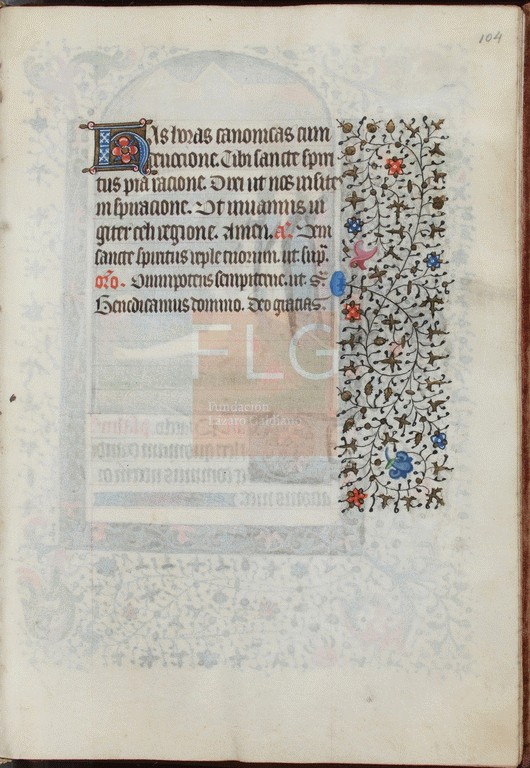 104
Has horas canonicas cum
deuocione. Tibi sancte spiri
tus pia racione. Dixi ut nos uisites
inspiracione. Ut uiuamus iu
giter celi regione. Amen. añ. Veni
sancte spiritus reple tuorum. ut. sup̄.
oro. Omnipotens sempiterne. ut. sͣ.
Benedicamus domino. Deo gracias.
FLG
Fundación
Lázaro Galdiano